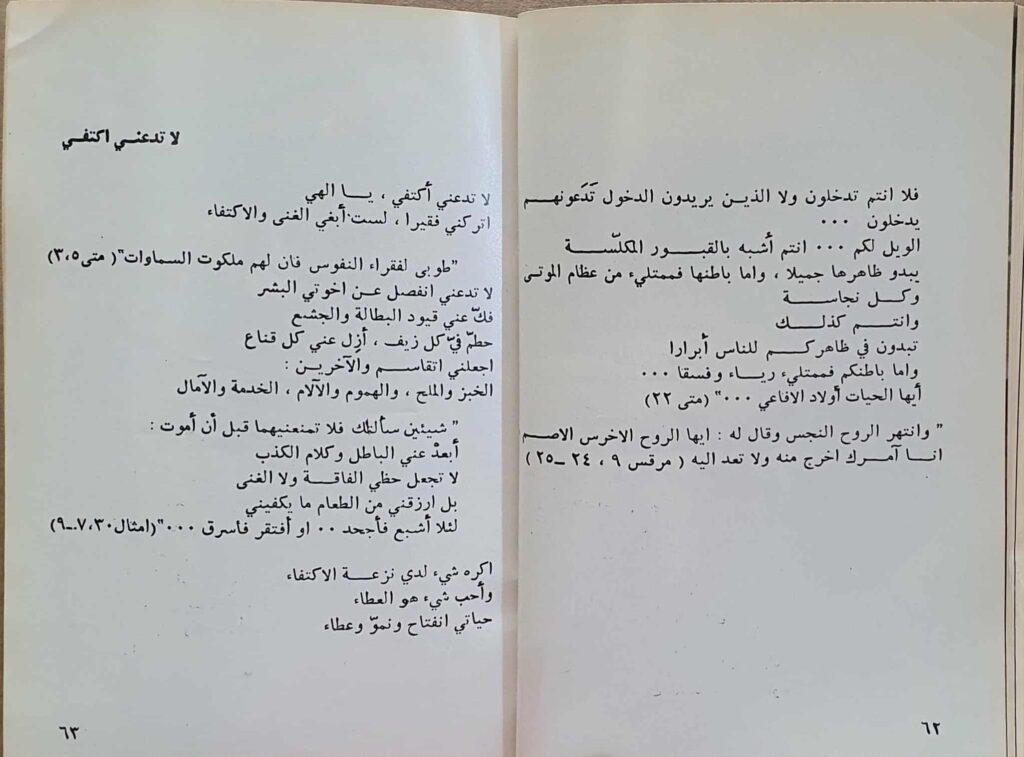 فلا انتم تدخلون ولا الذين يريدون الدخول تَدَعونهم
يدخلون ...
الويل لكم ... انتم أشبه بالقبور المكلّسة
يبدو ظاهرها جميلا ، واما باطنها فممتليء من عظام الموتى
وكل نجاسة
وانتم كذلك
تبدون في ظاهركم للناس أبرارا
واما باطنكم فممتليء رياء وفسقا ...
أيها الحيات أولاد الافاعي ..." (متى ٢٢)
" وانتهر الروح النجس وقال له : ايها الروح الاخرس الاصم
انا آمرك اخرج منه ولا تعد اليه ( مرقس ٩ ، ٢٤ -٢٥ )
٦٢
لا تدعني اكتفي
لا تدعني أكتفي ، يا الهي
اتركني فقيرا ، لست أبغي الغنى والاكتفاء
"طوبى لفقراء النفوس فان لهم ملكوت السماوات"( متى٣،٥)
لا تدعني انفصل عن اخوتي البشر
فكّ عني قيود البطالة والجشع
حطّم فيّ كل زيف ، أزِل عني كل قناع
اجعلني اتقاسم والآخرين :
الخبز والملح ، والهموم والآلام ، الخدمة والآمال
" شيئين سألتك فلا تمنعنيهما قبل أن أموت :
أبعدْ عني الباطل وكلام الكذب
لا تجعل حظي الفاقة ولا الغنى
بل ارزقني من الطعام ما يكفيني
لئلا أشبع فأجحد .. او أفتقر فأسرق ..."(امثال٧،٣٠-٩)
اكره شيء لدي نزعة الاكتفاء
وأحب شيء هو العطاء
حياتي انفتاح ونموّ وعطاء
٦٣